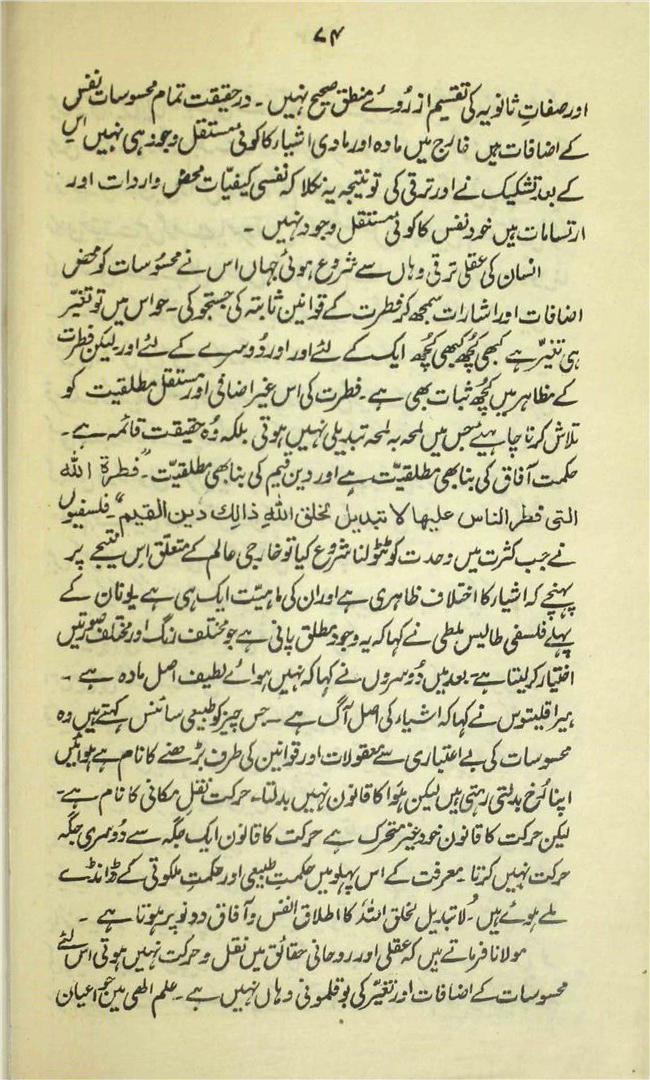 ۷۴
اور صفاتِ ثانویہ کی تقسیم از رُوئے منطق صحیح نہیں ۔ در حقیقت تمام محسوسات نفس
کے اضافات ہیں خارج میں مادہ اور مادی اشیاء کا کوئی مستقل وجود ہی نہیں اس
کے بعد تشکیک نے اور ترقی کی تو نتیجہ یہ نکلا کہ نفسی کیفیّات محض واردات اور
ارتسامات ہیں خود نفس کا کوئی مستقل وجود نہیں ۔
انسان کی عقلی ترقی وہاں سے شروع ہوئی جہاں اس نے محسُوسات کو محض
اضافات اور اشارات سمجھ کر فطرت کے قوانین ثابتہ کی جستجو کی ۔ حواس میں تو تغیّر
ہی تغیّر ہے کبھی کُچھ کبھی کُچھ ایک کے لئے اور اور دُوسرے کے لئے اور ۔ لیکن فطرت
کے مظاہر میں کُچھ ثبات بھی ہے ۔ فطرت کی اس غیر اضافی اور مستقل مطلقیت کو
تلاش کرنا چاہیے جس میں لمحہ بہ لمحہ تبدیلی نہیں ہوتی بلکہ وُہ حقیقت قائمہ ہے ۔
حکمت آفاق کی بنا بھی مطلقیّت ہے اور دین قیم کی بنا بھی مطلقیّت ۔ ”فطرة الله
التی فطر الناس علیها لا تبدیل لخلق اللهِ ذالك دین القیم“ ۔ فلسفیوں
نے جب کثرت میں وحدت کو ٹٹولنا شروع کیا تو خارجی عالم کے متعلق اس نتیجے پر
پہنچے کہ اشیاء کا اختلاف ظاہری ہے اور ان کی ماہیّت ایک ہی ہے یونان کے
پہلے فلسفی طالیس ملطی نے کہا کہ یہ وجود مطلق پانی ہے جو مختلف رنگ اور مختلف صورتیں
اختیار کر لیتا ہے ۔ بعد میں دُوسروں نے کہا کہ نہیں ہوائے لطیف اصل مادہ ہے ۔
ہیراقلیتوس نے کہا کہ اشیاء کی اصل آگ ہے ۔ جس چیز کو طبیعی سائنس کہتے ہیں وہ
محسوسات کی بے اعتباری سے معقولات اور قوانین کی طرف بڑھنے کا نام ہے ہوائیں
اپنا رُخ بدلتی رہتی ہیں لیکن ہَوا کا قانون نہیں بدلتا ۔ حرکت نقلِ مکانی کا نام ہے ۔
لیکن حرکت کا قانون خود غیر متحرک ہے حرکت کا قانون ایک جگہ سے دُوسری جگہ
حرکت نہیں کرتا ۔ معرفت کے اس پہلو میں حکمتِ طبیعی اور حکمتِ ملکوتی کے ڈانڈے
ملے ہوئے ہیں ۔ لا تبدیل لخلق اللہ کا اطلاق انفس و آفاق دونو پر ہوتا ہے ۔
مولانا فرماتے ہیں کہ عقلی اور روحانی حقائق میں نقل و حرکت نہیں ہوتی اس لئے
محسوسات کے اضافات اور تغیّر کی بو قلمونی وہاں نہیں ہے ۔ علم الٰھی میں جو اعیان